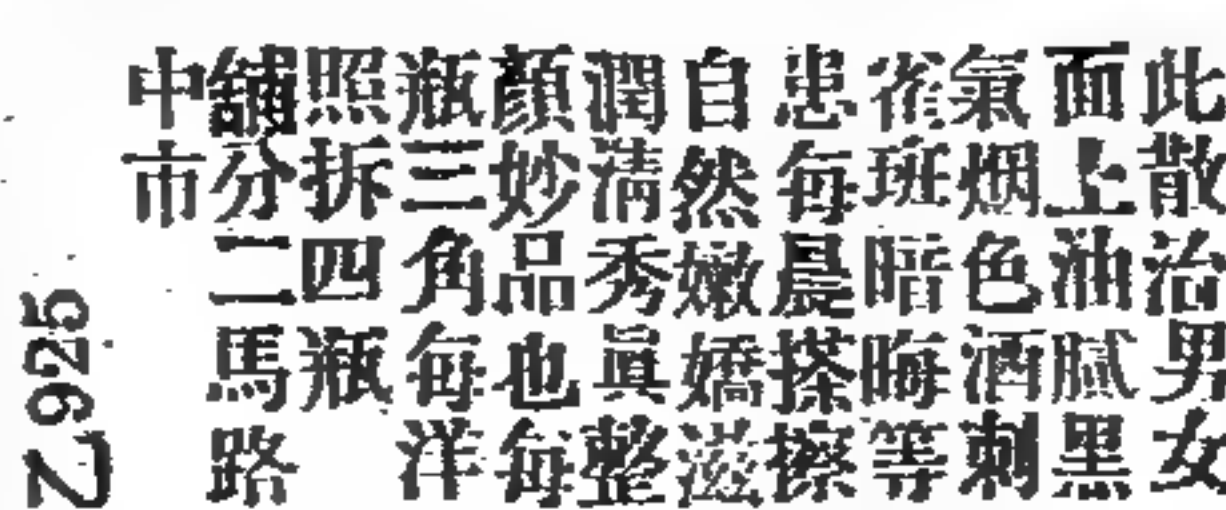 此散治男女
面上油膩黑
氣烟色酒刺
雀斑暗晦等
患每晨搽擦
自然嫩嬌滋
潤清秀眞整
顏妙品也每
瓶三角每洋
照拆四瓶
舖分二馬路
中市
5262